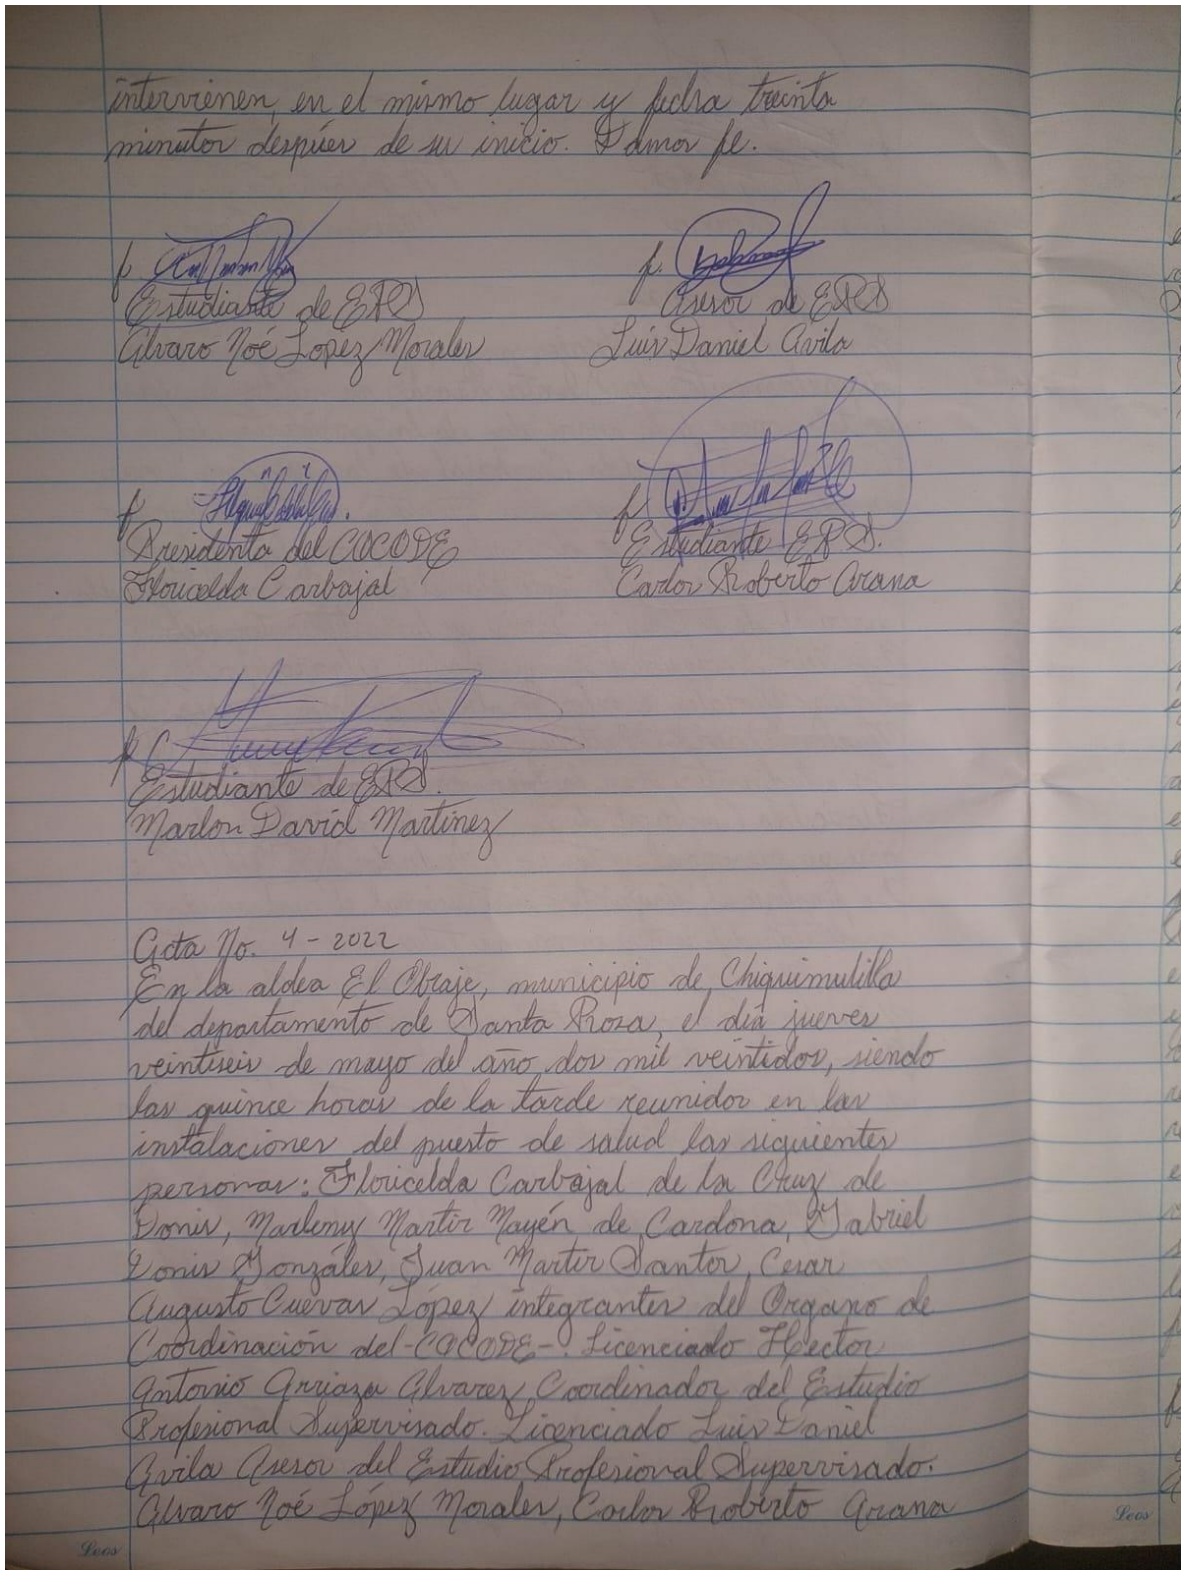 intervienen, en el mismo lugar y fecha treinta
minutos despúes de su inicio. Damos fe.
f.
f.
Estudiante de EPS
Asesor de EPS
Alvaro Noé Lopez Morales
Luis Daniel Avila
f.
f.
Presidenta del COCODE
Estudiante EPS.
Floricelda Carbajal
Carlos Roberto Arana
f.
Estudiante de EPS.
Marlon David Martínez
Acta No. 4-2022
En la aldea El Obraje, municipio de Chiquimulilla
del departamento de Santa Rosa, el día jueves
veintiseis de mayo del año dos mil veintidos, siendo
las quince horas de la tarde reunidos en las
instalaciones del puesto de salud las siguientes
personas: Floricelda Carbajal de la Cruz de
Donis, Marleny Martir Mayén de Cardona, Gabriel
Donis Gonzáles, Juan Martir Santos, Cesar
Augusto Cuevas López integrantes del Organo de
Coordinación del -COCODE-. Licenciado Hector
Antonio Arriaza Alvarez Coordinador del Estudio
Profesional Supervisado. Licenciado Luis Daniel
Avila Asesor del Estudio Profesional Supervisado.
Alvaro Noé López Morales, Carlos Roberto Arana
Leos
Leos